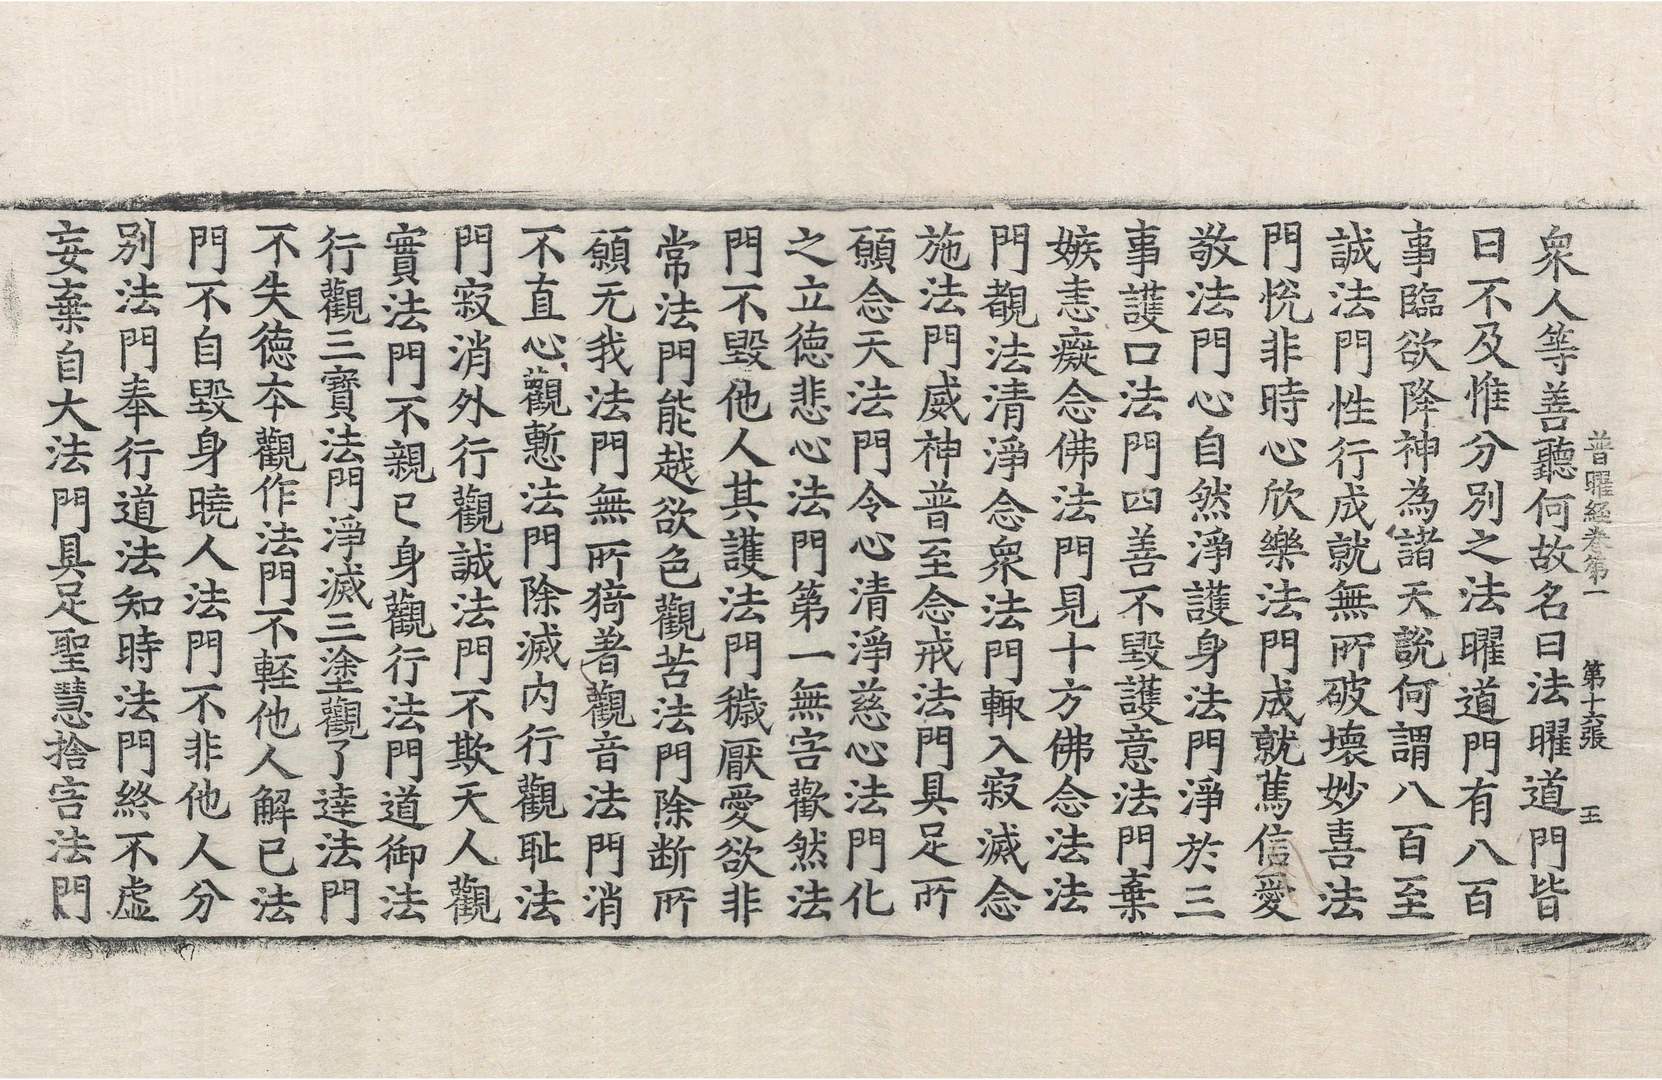 普曜經卷第一　第十六張　王
衆人等善聽何故名曰法曜道門皆
曰不及惟分別之法曜道門有八百
事臨欲降神為諸天說何謂八百至
誠法門性行成就無所破壞妙喜法
門恱非時心欣樂法門成就篤信愛
敬法門心自然淨護身法門淨於三
事護口法門四善不毀護意法門棄
嫉恚癡念佛法門見十方佛念法法
門覩法清淨念衆法門輙入寂滅念
施法門威神普至念戒法門具足所
願念天法門令心清淨慈心法門化
之立德悲心法門第一無害歡然法
門不毀他人其護法門穢厭愛欲非
常法門能越欲色觀苦法門除断所
願无我法門無所猗著觀音法門消
不直心觀慙法門除滅内行觀耻法
門寂消外行觀誠法門不欺天人觀
實法門不親已身觀行法門道御法
行觀三寶法門淨滅三塗觀了達法門
不失德本觀作法門不輕他人解已法
門不自毀身曉人法門不非他人分
別法門奉行道法知時法門終不虛
妄棄自大法門具足聖慧捨害法門